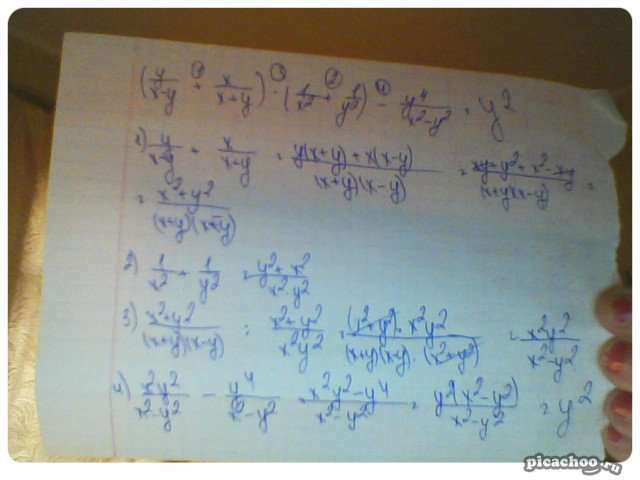 (y/(x-y) + x/(x+y)) : (1/x² + 1/y²) - y⁴/(x²-y²) = y²
1) y/(x-y) + x/(x+y) = (y(x+y)+x(x-y))/((x+y)(x-y)) = (xy+y²+x²-xy)/((x+y)(x-y)) =
= (x²+y²)/((x+y)(x-y))
2) 1/x² + 1/y² = (y²+x²)/(x²·y²)
3) (x²+y²)/((x+y)(x-y)) : (x²+y²)/(x²y²) = ((x²+y²)·x²y²)/((x+y)(x-y)·(x²+y²)) = x²y²/(x²-y²)
4) x²y²/(x²-y²) - y⁴/(x²-y²) = (x²y²-y⁴)/(x²-y²) = y²(x²-y²)/(x²-y²) = y²
picachoo.ru